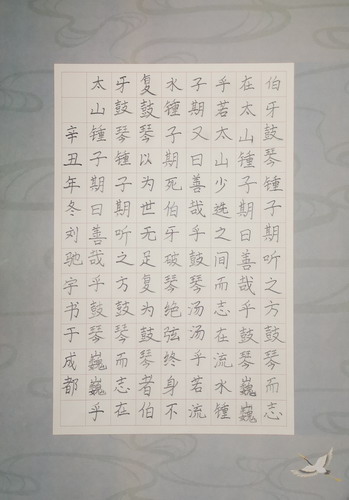 伯牙鼓琴锺子期听之方鼓琴而志
在太山锺子期曰善哉乎鼓琴巍巍
乎若太山少选之间而志在流水锺
子期又曰善哉乎鼓琴汤汤乎若流
水锺子期死伯牙破琴绝弦终身不
复鼓琴以为世无足复为鼓琴者伯
牙鼓琴锺子期听之方鼓琴而志在
太山锺子期曰善哉乎鼓琴巍巍乎
辛丑年冬刘驰宇书于成都